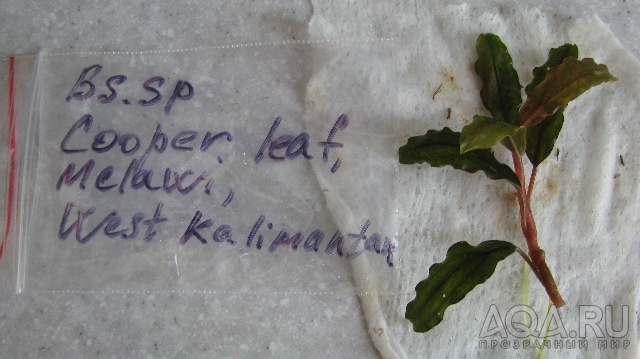 Bs. sp
Cooper leaf,
Melawi,
West Kalimantan
AQA.RU
ПРОЗРАЧНЫЙ МИР